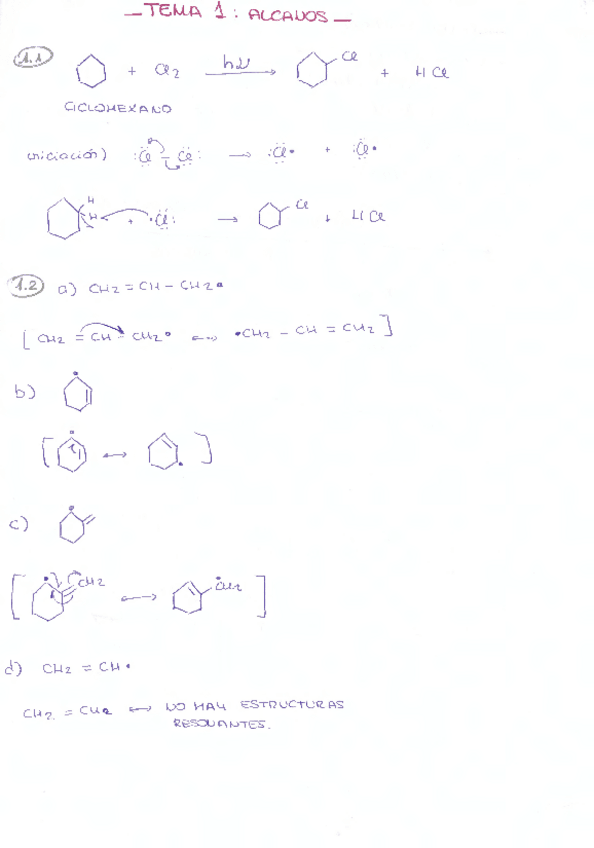 _TEMA 1: ALCANOS_
1.1 + Cl2 hν Cl + HCl
CICLOHEXANO
iniciación) :Cl – Cl: → :Cl• + :Cl•
H H + •Cl: → Cl + HCl
1.2 a) CH2=CH-CH2•
[CH2=CH-CH2• ↔ •CH2-CH=CH2]
b)
[ ↔ ]
c)
[ CH2 ↔ CH2 ]
d) CH2 = CH•
CH2 = CH2 ↔ NO HAY ESTRUCTURAS
RESONANTES.